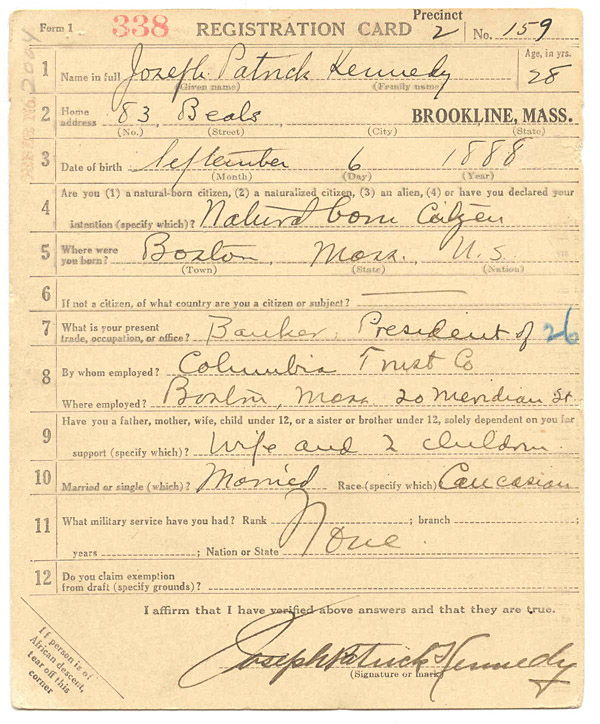 Form 1 338 REGISTRATION CARD Precinct 2 No. 159
1 Name in full Joseph Patrick Kennedy Age, in yrs. 28
(Given name) (Family name)
2 Home address 83 Beals BROOKLINE, MASS.
(No.) (Street) (City) (State)
3 Date of birth September 6 1888
(Month) (Day) (Year)
4 Are you (1) a natural-born citizen, (2) a naturalized citizen, (3) an alien, (4) or have you declared your
intention (specify which)? Natural born Citizen
5 Where were you born? Boston, Mass. U.S.
(Town) (State) (Nation)
6 If not a citizen, of what country are you a citizen or subject?
7 What is your present trade, occupation, or office? Banker, President of 26
8 By whom employed? Columbia Trust Co
Where employed? Boston, Mass 20 Meridian St.
9 Have you a father, mother, wife, child under 12, or a sister or brother under 12, solely dependent on you for
support (specify which)? Wife and 2 children
10 Married or single (which)? Married Race (specify which) Caucasian
11 What military service have you had? Rank None. ; branch ;
years ; Nation or State
12 Do you claim exemption
from draft (specify grounds)?
I affirm that I have verified above answers and that they are true.
Joseph Patrick Kennedy
(Signature or mark)
If person is of
African descent,
tear off this
corner